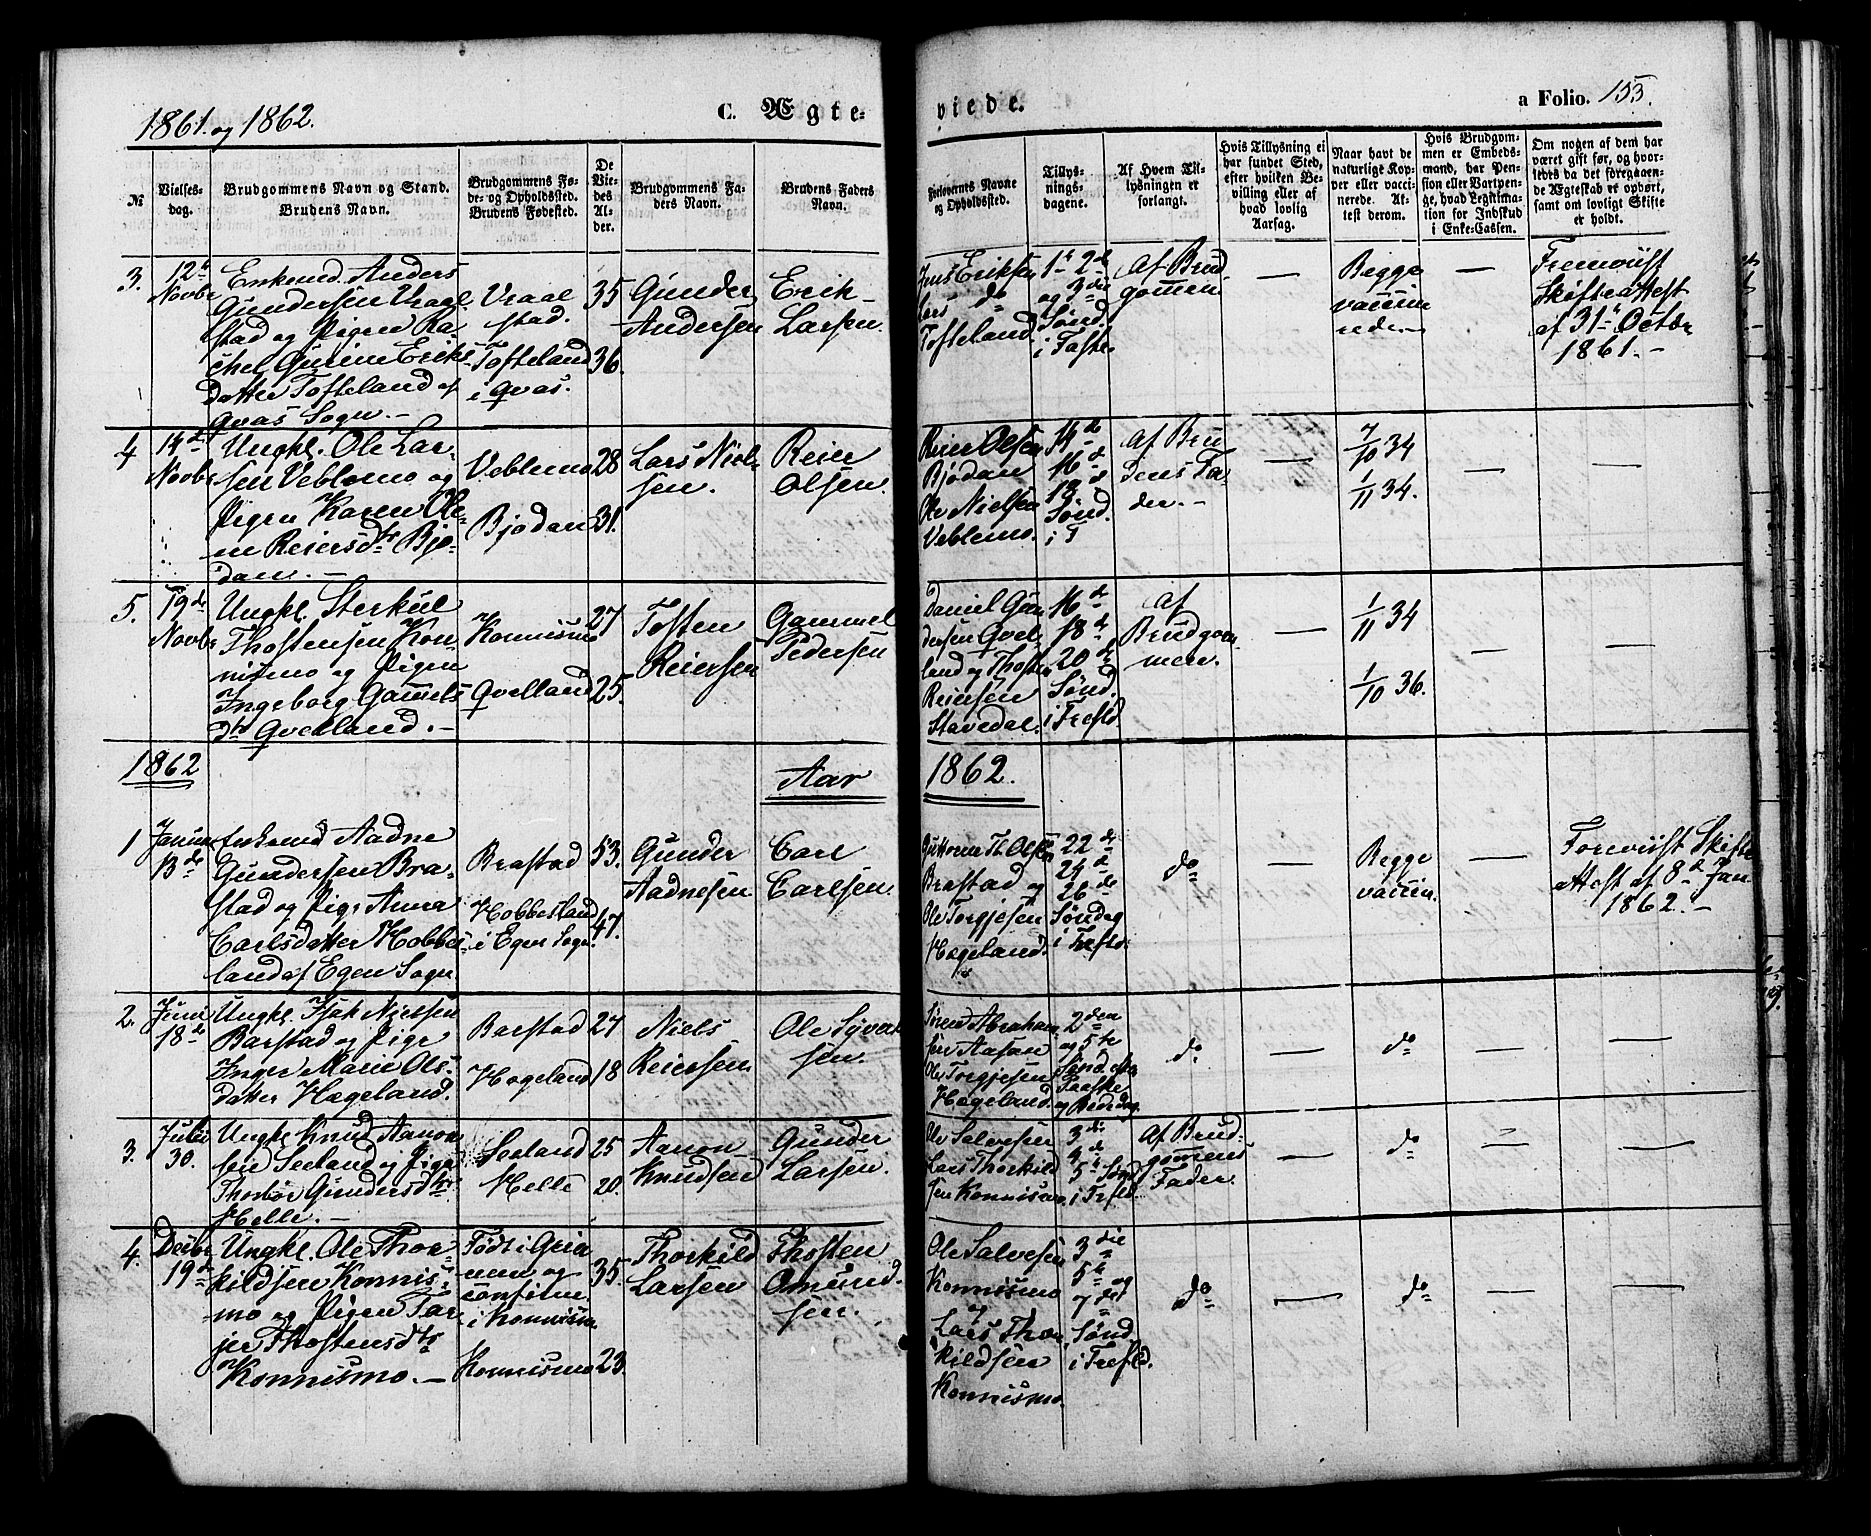 1861. og 1862.
C. Ægte-
viede.
a Folio. 153.
№
Vielses-
dag.
Brudgommens Navn og Stand.
Brudens Navn.
Brudgommens Fø-
de- og Opholdssted.
Brudens Fødested.
De
Vie-
des
Al-
der.
Brudgommens Fa-
ders Navn.
Brudens Faders
Navn.
Forlovernes Navne
og Opholdssted.
Tillys-
nings-
dagene.
Af Hvem Til-
lysningen er
forlangt.
Hvis Tillysning ei
har fundet Sted,
efter hvilken Be-
villing eller af
hvad lovlig
Aarsag.
Naar havt de
naturlige Kop-
per eller vacci-
nerede. At-
test derom.
Hvis Brudgom-
men er Embeds-
mand, har Pen-
sion eller Vartpen-
ge, hvad Legitima-
tion for Indskud
i Enke-Cassen.
Om nogen af dem har
været gift før, og hvor-
ledes da det foregaaen-
de Ægteskab er ophørt,
samt om lovligt Skifte
er holdt.
3.
12te
Novbr
Enkemd. Anders
Gundersen Vraal-
stad og Pigen Ra-
chel Gurine Eriks-
datter Tofteland af
Qvas Sogn. –
Vraal
stad.
Tofteland
i Qvas.
35
36.
Gunder
Andersen
Erik
Larsen.
Jens Eriksen
Lars do
Tofteland.
1te 2de
og 3die
Sønd.
i Faste.
Af Brud
gommen
—
Begge
vaccine
rede. –
—
Fremviist
Skifteattest
af 31te Octbr
1861. –
4
14de
Novbr
Ungkl. Ole Lar-
sen Veblemo og
Pigen Karen Ole-
ne Reiersdtr Bjo-
dan. –
Veblemo
Bjodan
28
31.
Lars Niel-
sen.
Reier
Olsen.
Reier Olsen
Bjodan
Ole Nielsen
Veblemo.
14de
16de
18de
Sønd.
i T
Af Bru
dens Fa-
der. –
—
7/10 34
1/11 34.
—
—
5.
19de
Novbr
Ungkl. Sterkul
Thostensen Kon-
nismo og Pigen
Ingeborg Gamels
dtr Qvelland. –
Konnismo
Qvelland
27
25.
Tosten
Reiersen
Gammel
Pedersen
Daniel Gun
dersen Qvel-
land og Thosten
Reiersen
Stavedal.
16de
18de
20de
Sønd.
i Trefld
Af
Brudgom
men.
—
1/11 34
1/10 36.
—
—
1862
Aar
1862.
1
Januar
13de
Enkemd Aadne
Gundersen Bra-
stad og Pige Anna
Carlsdatter Hobbes-
land af Egen Sogn
Brastad
Hobbesland
i Egen Sogn.
53.
47.
Gunder
Aadnesen
Carl
Carlsen.
Guttorm Th. Olsen
Brastad og
Ole Torgjesen
Hægeland.
22de
24de
26de
Søndag
i Trefld.
do
—
Begge
vaccin.
—
Foreviist Skifte
attest af 8de Jan
1862. –
2.
Juni
18de
Ungkl. Isak Nielsen
Barstad og Pige
Inger Marie Ols-
datter Hægeland.
Barstad
Hægeland
27
18
Niels
Reiersen
Ole Syvert
sen.
Søren Abraham
sen Aasan
Ole Torgjesen
Hægeland.
2den
og 5te
Sønd. efter
Paaske
og Bededag
do
—
do
—
—
3.
Julii
30.
Ungkl Knud Aanon
sen Seeland og Pige
Thorbør Gundersdtr
Helle. –
Seeland
Helle
25
20.
Aanon
Knudsen
Gunder
Larsen.
Ole Salvesen
Lars Thorkild
sen Konnismo.
3die
4de
5te Sønd
i Trefld.
Af Brud-
gommens
Fader.
—
do
—
—
4.
Decbr
19de
Ungkl. Ole Thor-
kildsen Konnis-
mo og Pigen Tar-
jer Thostensdtr
Konnismo. –
Født i Grin
um og
confirm.
i Konnism.
Konnismo
35.
23.
Thorkild
Larsen
Thosten
Omund-
sen.
Ole Salvesen
Konnismo
og
Lars Thor
kildsen
Konnismo.
3die
5te og
7de
Sønd
i Trefld.
do
—
do
—
—